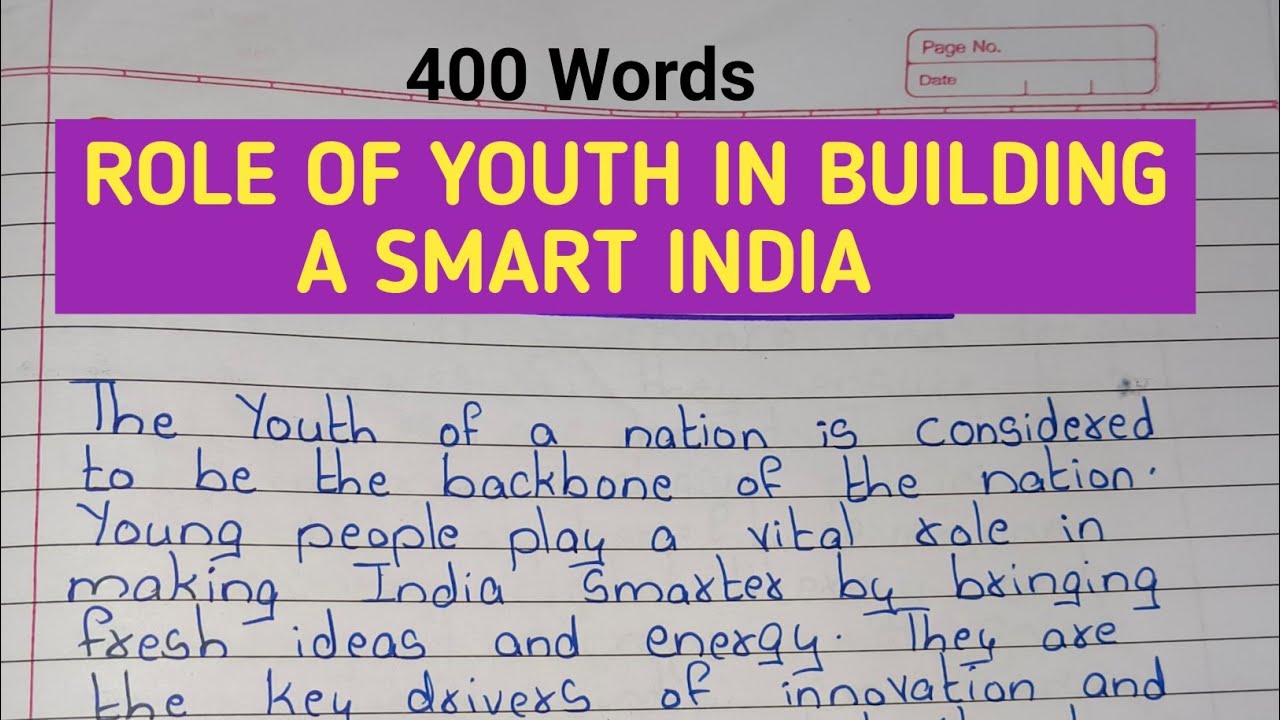 400 Words
Page No.
Date
ROLE OF YOUTH IN BUILDING
A SMART INDIA
The Youth of a nation is considered
to be the backbone of the nation.
Young people play a vital role in
making India Smarter by bringing
fresh ideas and energy. They are
the key drivers of innovation and